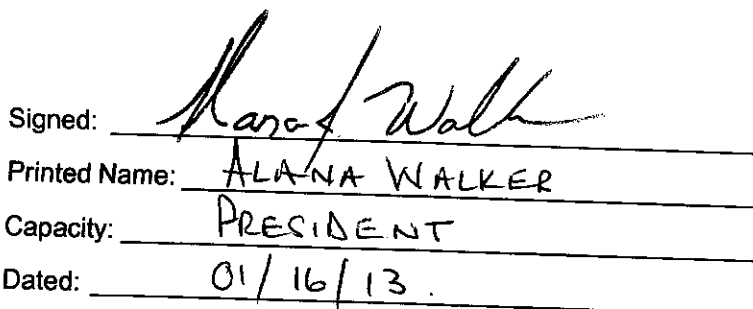 Signed: Alana J Walker
Printed Name: ALANA WALKER
Capacity: PRESIDENT
Dated: 01/16/13.